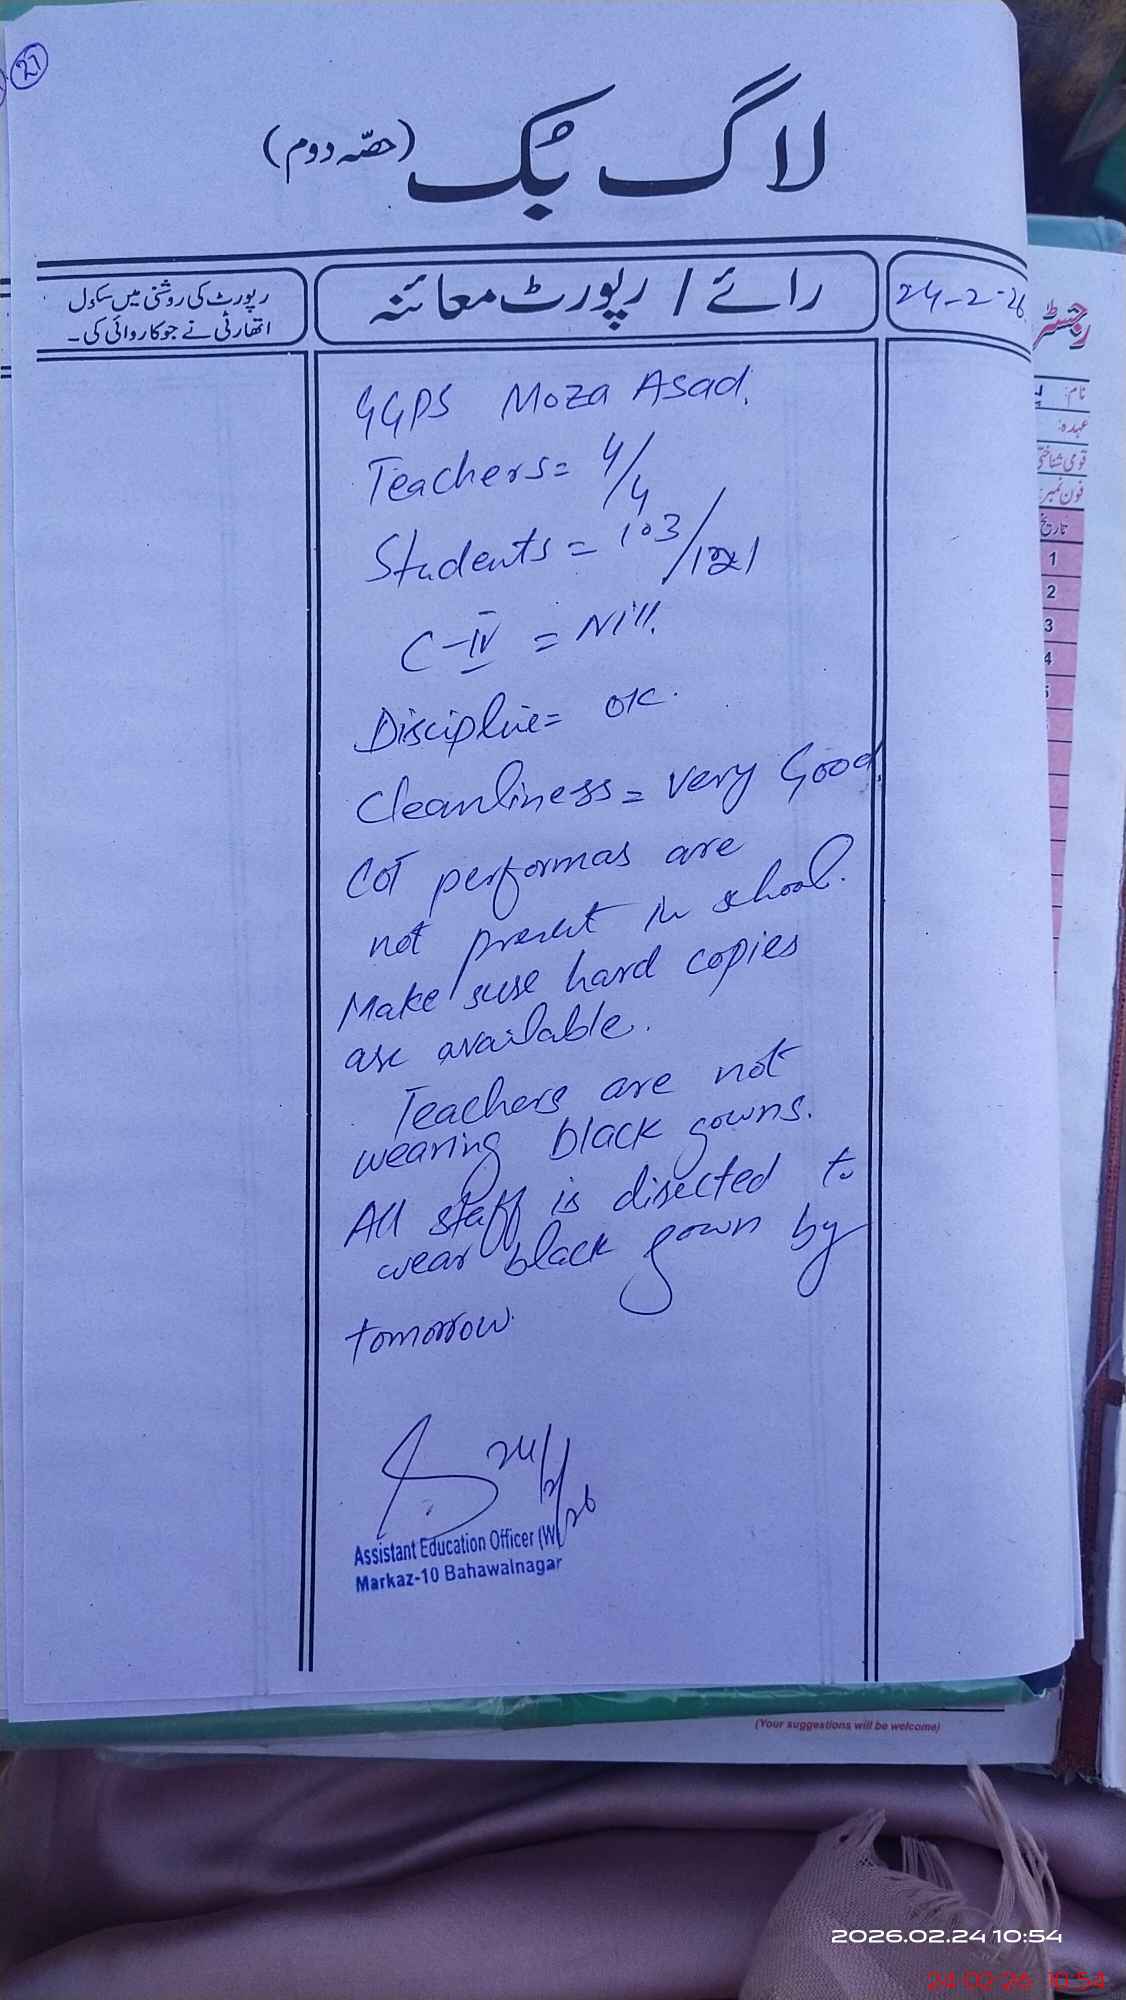 27
لاگ بُک (حصّہ دوم)
رپورٹ کی روشنی میں سکول
اتھارٹی نے جو کاروائی کی۔
رائے / رپورٹ معائنہ
24-2-26.
GGPS Moza Asad.
Teachers = 4/4
Students = 103/121
C-IV = Nill.
Discipline = ok.
Cleanliness = very Good.
COT performas are
not present in school.
Make sure hard copies
are available.
Teachers are not
wearing black gowns.
All staff is directed to
wear black gown by
tomorrow.
24/2/26
Assistant Education Officer (W)
Markaz-10 Bahawalnagar
رجسٹر
نام:
عہدہ:
قومی شناختی
فون نمبر:
تاریخ
1
2
3
4
5
(Your suggestions will be welcome)
2026.02.24 10:54
24-02-26 10:54